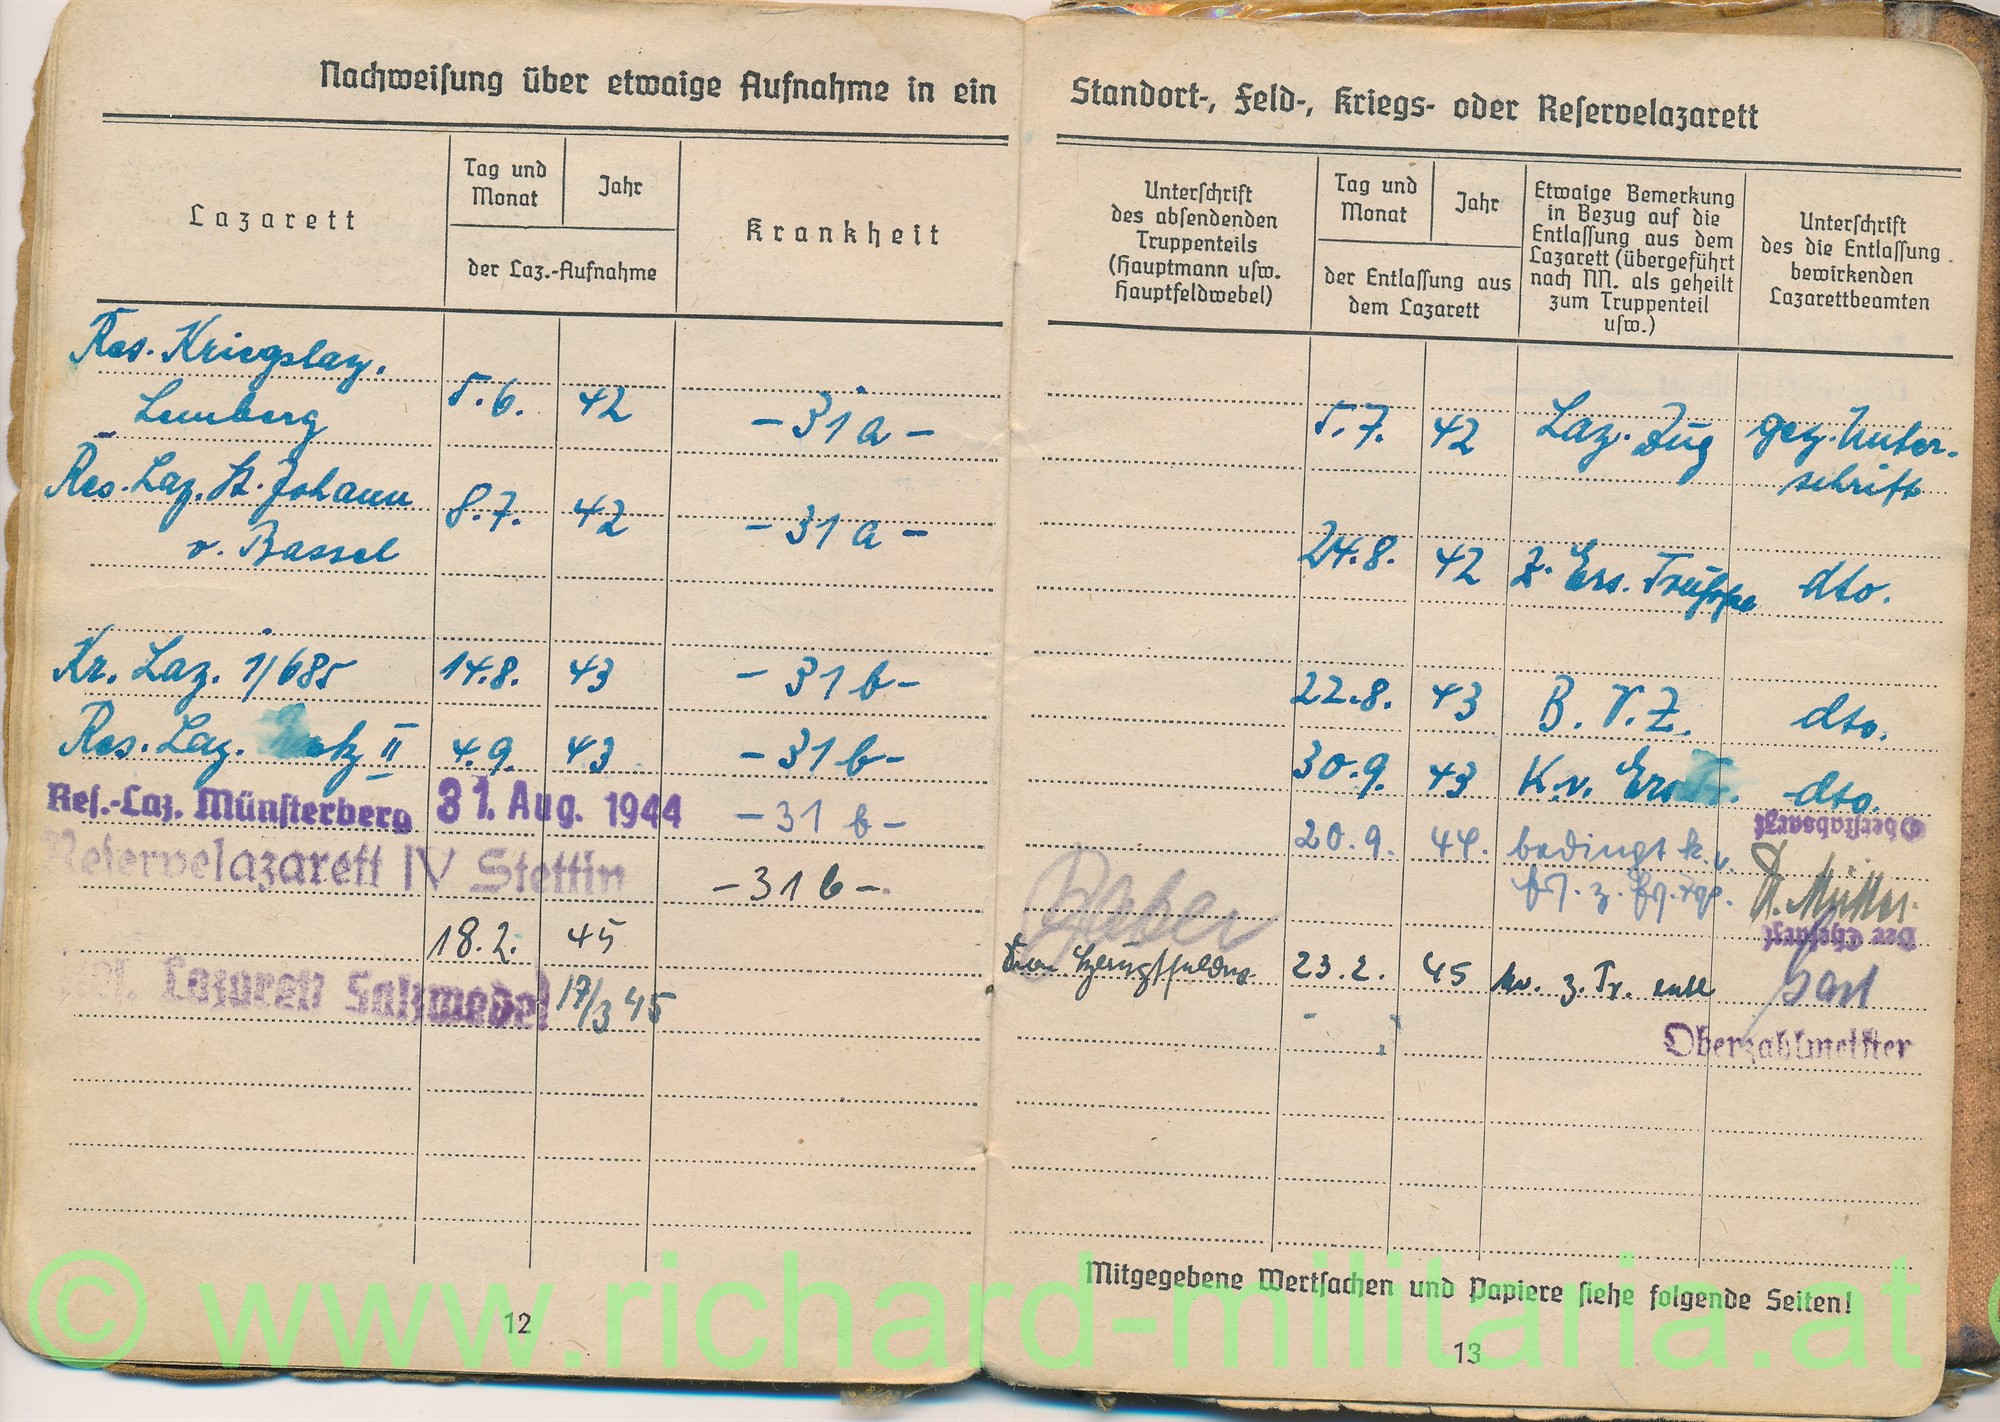 Nachweisung über etwaige Aufnahme in ein
Lazarett
Tag und
Monat
Jahr
der Laz.-Aufnahme
Krankheit
Res. Kriegslaz.
Lemberg
5.6. 42 -31a-
Res. Laz. St. Johann
v. Bassel
8.7. 42 -31a-
Kr. Laz. 1/685 14.8. 43 -31b-
Res. Laz. II 4.9. 43 -31b-
Res.-Laz. Münsterberg 31. Aug. 1944 -31b-
Reservelazarett IV Stettin -31b-
18.2. 45
Lazarett Salzwedel 17/3 45
12
Standort-, Feld-, Kriegs- oder Reservelazarett
Unterschrift
des absendenden
Truppenteils
(Hauptmann usw.
Hauptfeldwebel)
Tag und
Monat
Jahr
der Entlassung aus
dem Lazarett
Etwaige Bemerkung
in Bezug auf die
Entlassung aus dem
Lazarett (übergeführt
nach M. als geheilt
zum Truppenteil
usw.)
Unterschrift
des die Entlassung
bewirkenden
Lazarettbeamten
5.7. 42 Laz. Zug gez. Unter-
schrift
24.8. 42 z. Ers. Truppe dto.
22.8. 43 B.V.Z. dto.
30.9. 43 K.v. Ers. Tr. dto.
Oberstabsarzt
20.9. 44. bedingt k.v.
Dr. Müller
Der Chefarzt
23.2. 45 kv. z. Tr. entl
Oberzahlmeister
Mitgegebene Wertsachen und Papiere siehe folgende Seiten!
13
© www.richard-militaria.at ©